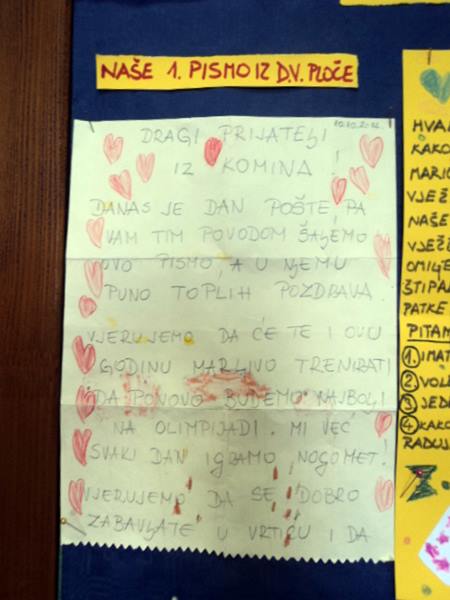 NAŠE 1. PISMO IZ D.V. PLOČE
DRAGI PRIJATELJI
IZ KOMINA !
DANAS JE DAN POŠTE, PA
VAM TIM POVODOM ŠALJEMO
OVO PISMO, A U NJEMU
PUNO TOPLIH POZDRAVA
VJERUJEMO DA ĆE TE I OVU
GODINU MARLJIVO TRENIRATI
DA PONOVO BUDEMO NAJBOLJI
NA OLIMPIJADI. MI VEĆ
SVAKI DAN IGRAMO NOGOMET!
VJERUJEMO DA SE DOBRO
ZABAVLJATE U VRTIĆU I DA
HVA
KAKO
MARIO
VJEŽ
NAŠE
VJEŽB
OMILJE
ŠTIPA
PATKE
PITAM
1. IMAT
2. VOL
3. JEDE
4. KAKO
RADUJ